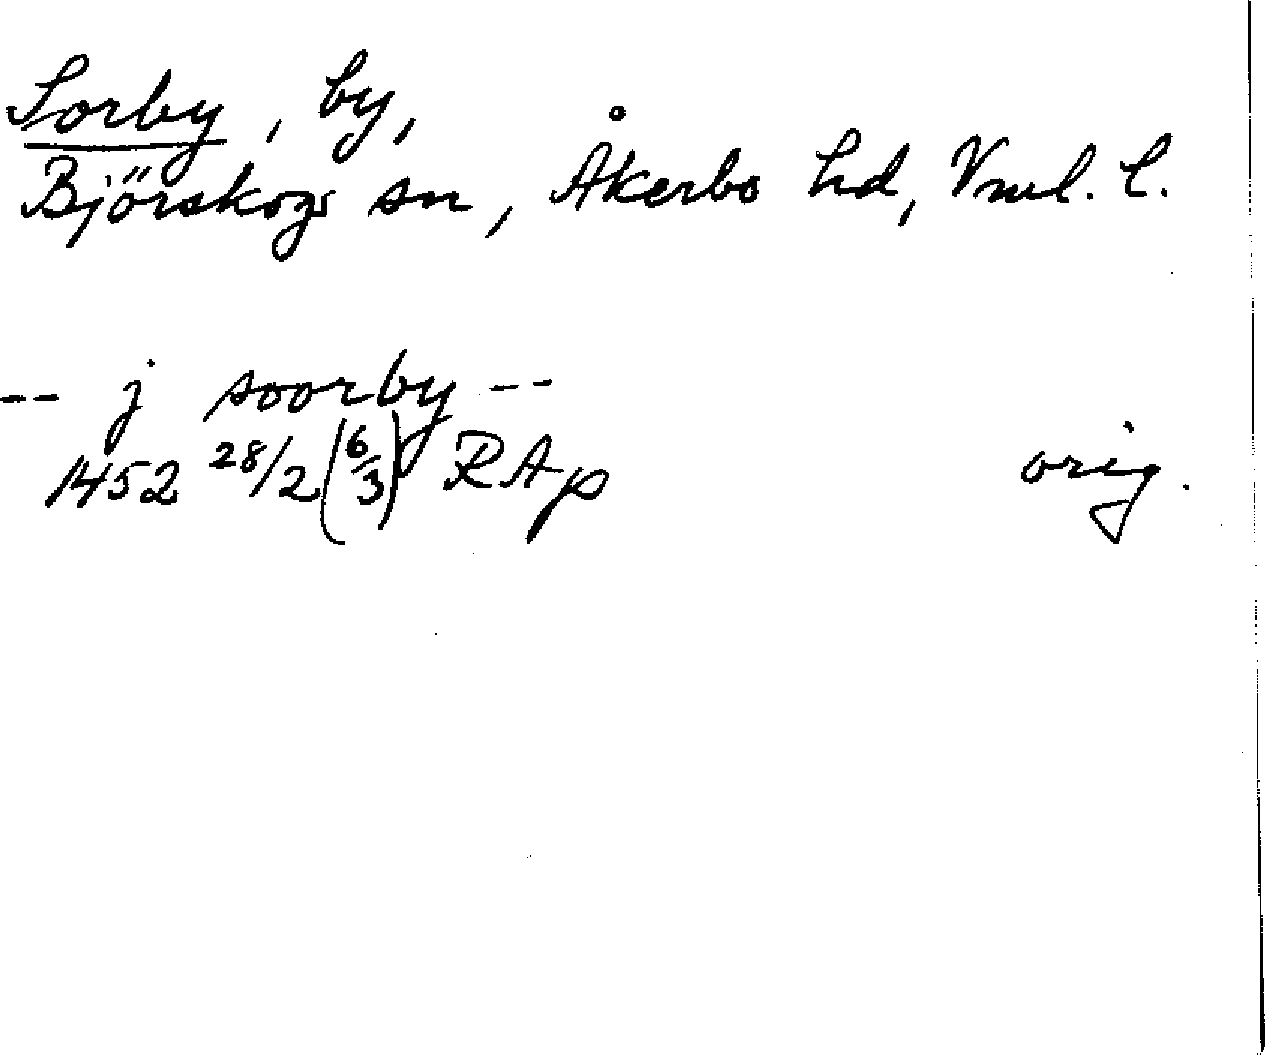 Sorby, by,
Björskogs sn, Åkerbo hd, Vml. l.
-- j soorby --
1452 28/2 (6/3) RAp orig.